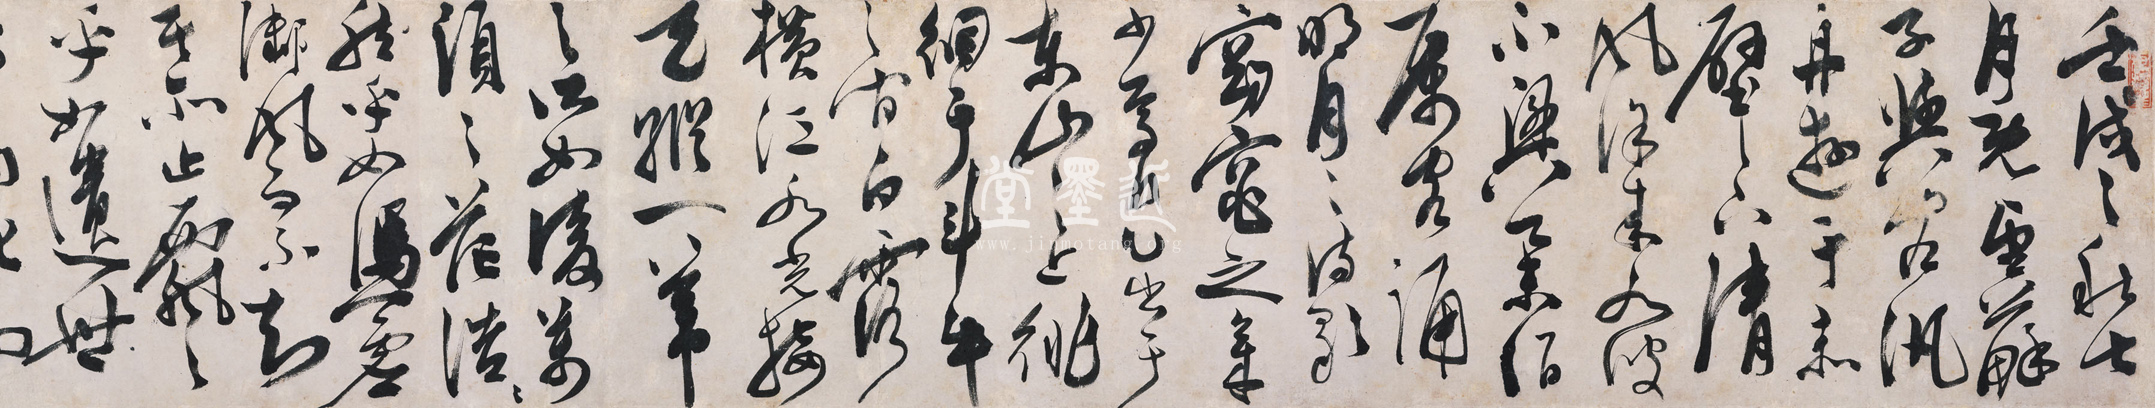 壬戌之秋七
月既望蘇
子與客汎
舟遊于赤
壁之下清
風徐来水波
不興舉酒
属客誦
明月之詩歌
窈窕之章
少焉月出于
東山之上徘
徊于斗牛
之間白露
橫江水光接
天縱一葦
之所如凌萬
頃之茫浩〻
然乎如馮虛
御風而不知
其所止飄〻
乎如遺世
近墨堂
www.jinmotang.org